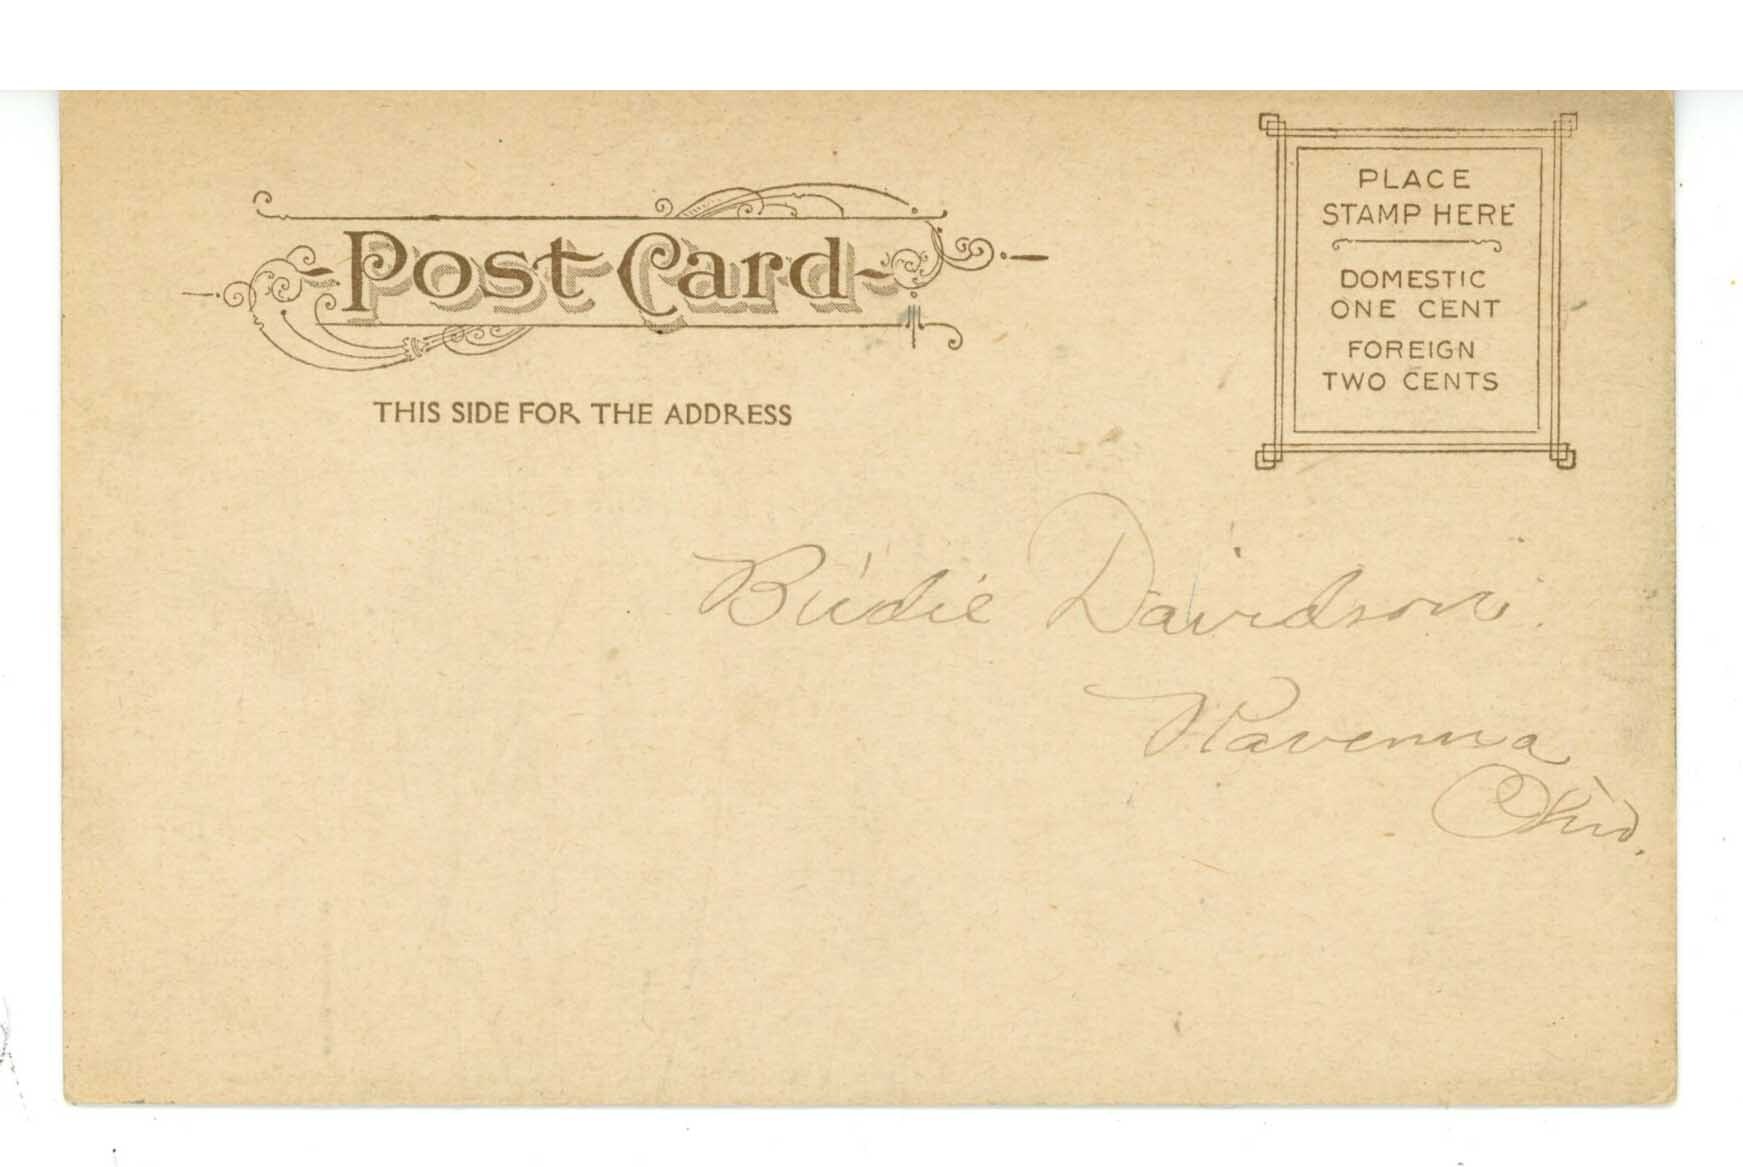 Post Card
THIS SIDE FOR THE ADDRESS
PLACE
STAMP HERE
DOMESTIC
ONE CENT
FOREIGN
TWO CENTS
Birdie Davidson.
Ravenna
Ohio.